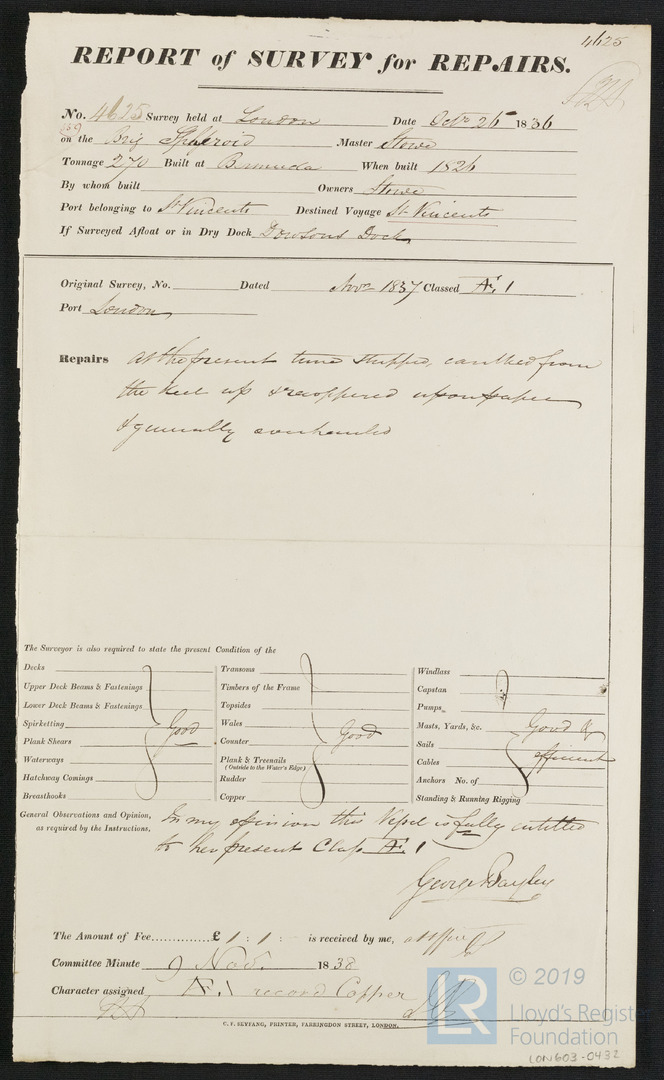 4625
REPORT of SURVEY for REPAIRS.
No. 4625 Survey held at London Date Octr 26 1836
on the Brig Spheroid Master Stowe
Tonnage 270 Built at Bermuda When built 1826
By whom built Owners Stowe
Port belonging to St Vincents Destined Voyage St Vincents
If Surveyed Afloat or in Dry Dock Dowsons Dock
Original Survey, No. Dated Novr 1837 Classed Æ. 1
Port London
Repairs At the present time stripped, caulked from
the keel up & recoppered upon paper
& generally overhauled
The Surveyor is also required to state the present Condition of the
Decks
Upper Deck Beams & Fastenings
Lower Deck Beams & Fastenings
Spirketting
Plank Shears
Waterways
Hatchway Comings
Breasthooks
Good
Transoms
Timbers of the Frame
Topsides
Wales
Counter
Plank & Treenails
(Outside to the Water's Edge)
Rudder
Copper
Good
Windlass
Capstan
Pumps
Masts, Yards, &c.
Sails
Cables
Anchors No. of
Standing & Running Rigging
Good &
efficient
General Observations and Opinion, In my opinion this Vessel is fully entitled
as required by the Instructions, to her present Class Æ. 1
George Bayley
The Amount of Fee £ 1 : 1 : is received by me,
Committee Minute 9 Novr. 1838
Character assigned Æ. 1 record Copper
C. F. SEYFANG, PRINTER, FARRINGDON STREET, LONDON.
LR
© 2019
Lloyd's Register
Foundation
LON603-0432